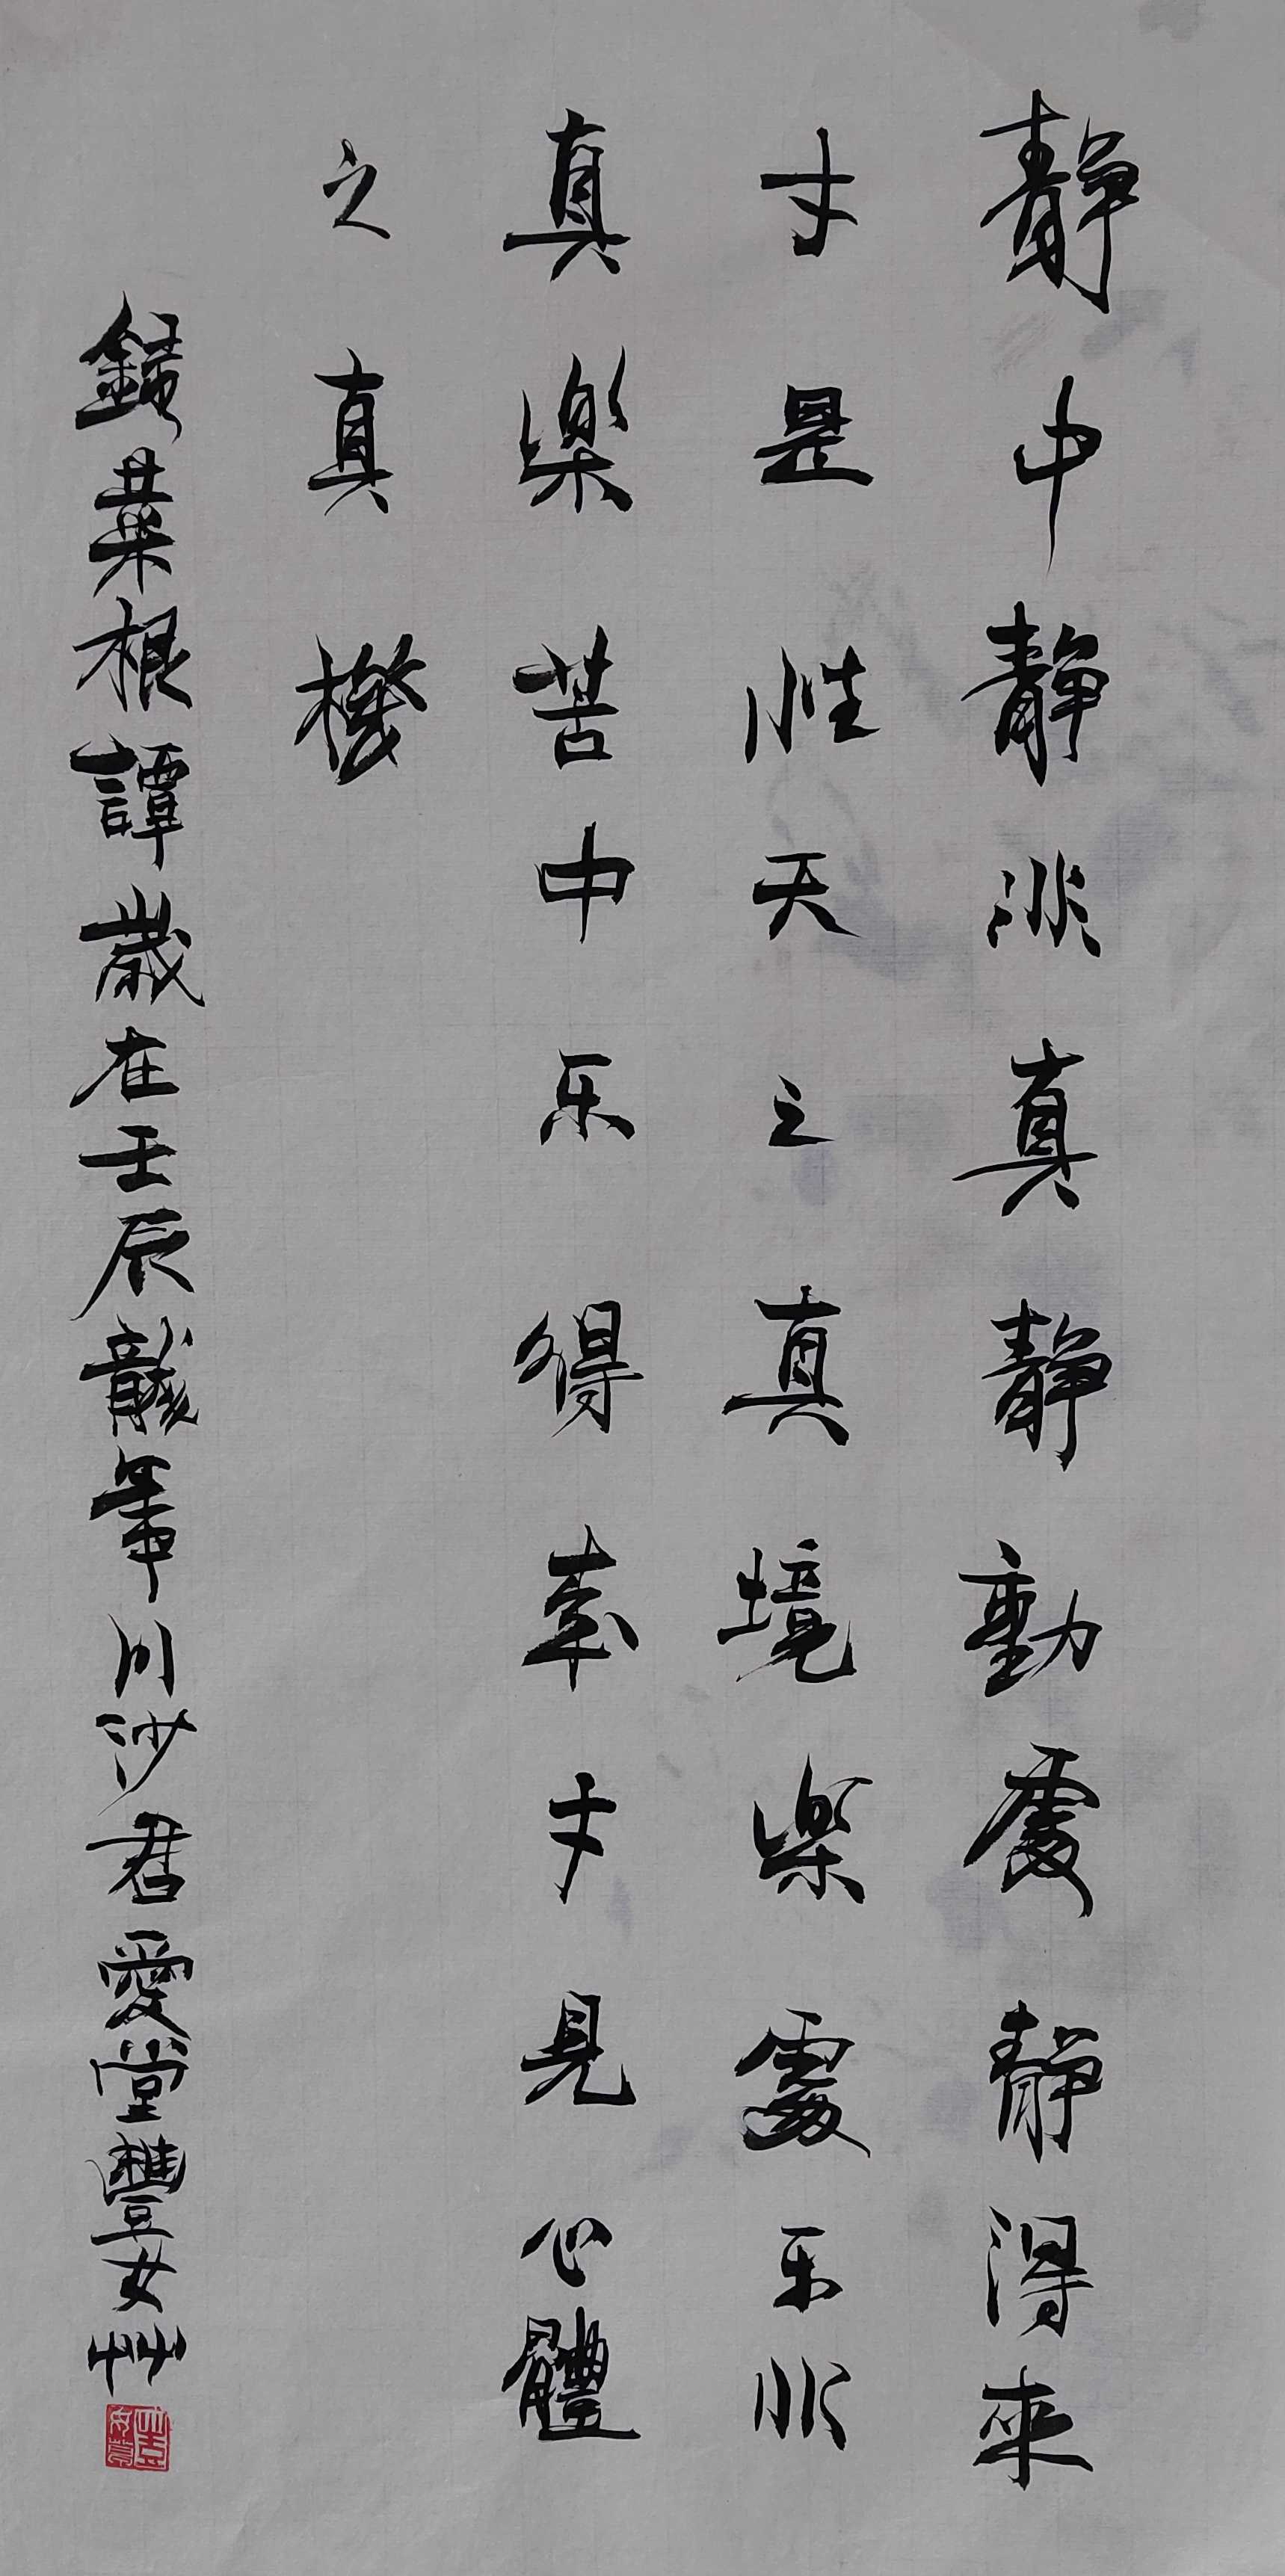 靜中靜非真靜動處靜得來
才是性天之真境樂處乐非
真樂苦中乐得來才見心體
之真機
錄菜根譚歲在壬辰龍年川沙君愛堂豐女艸